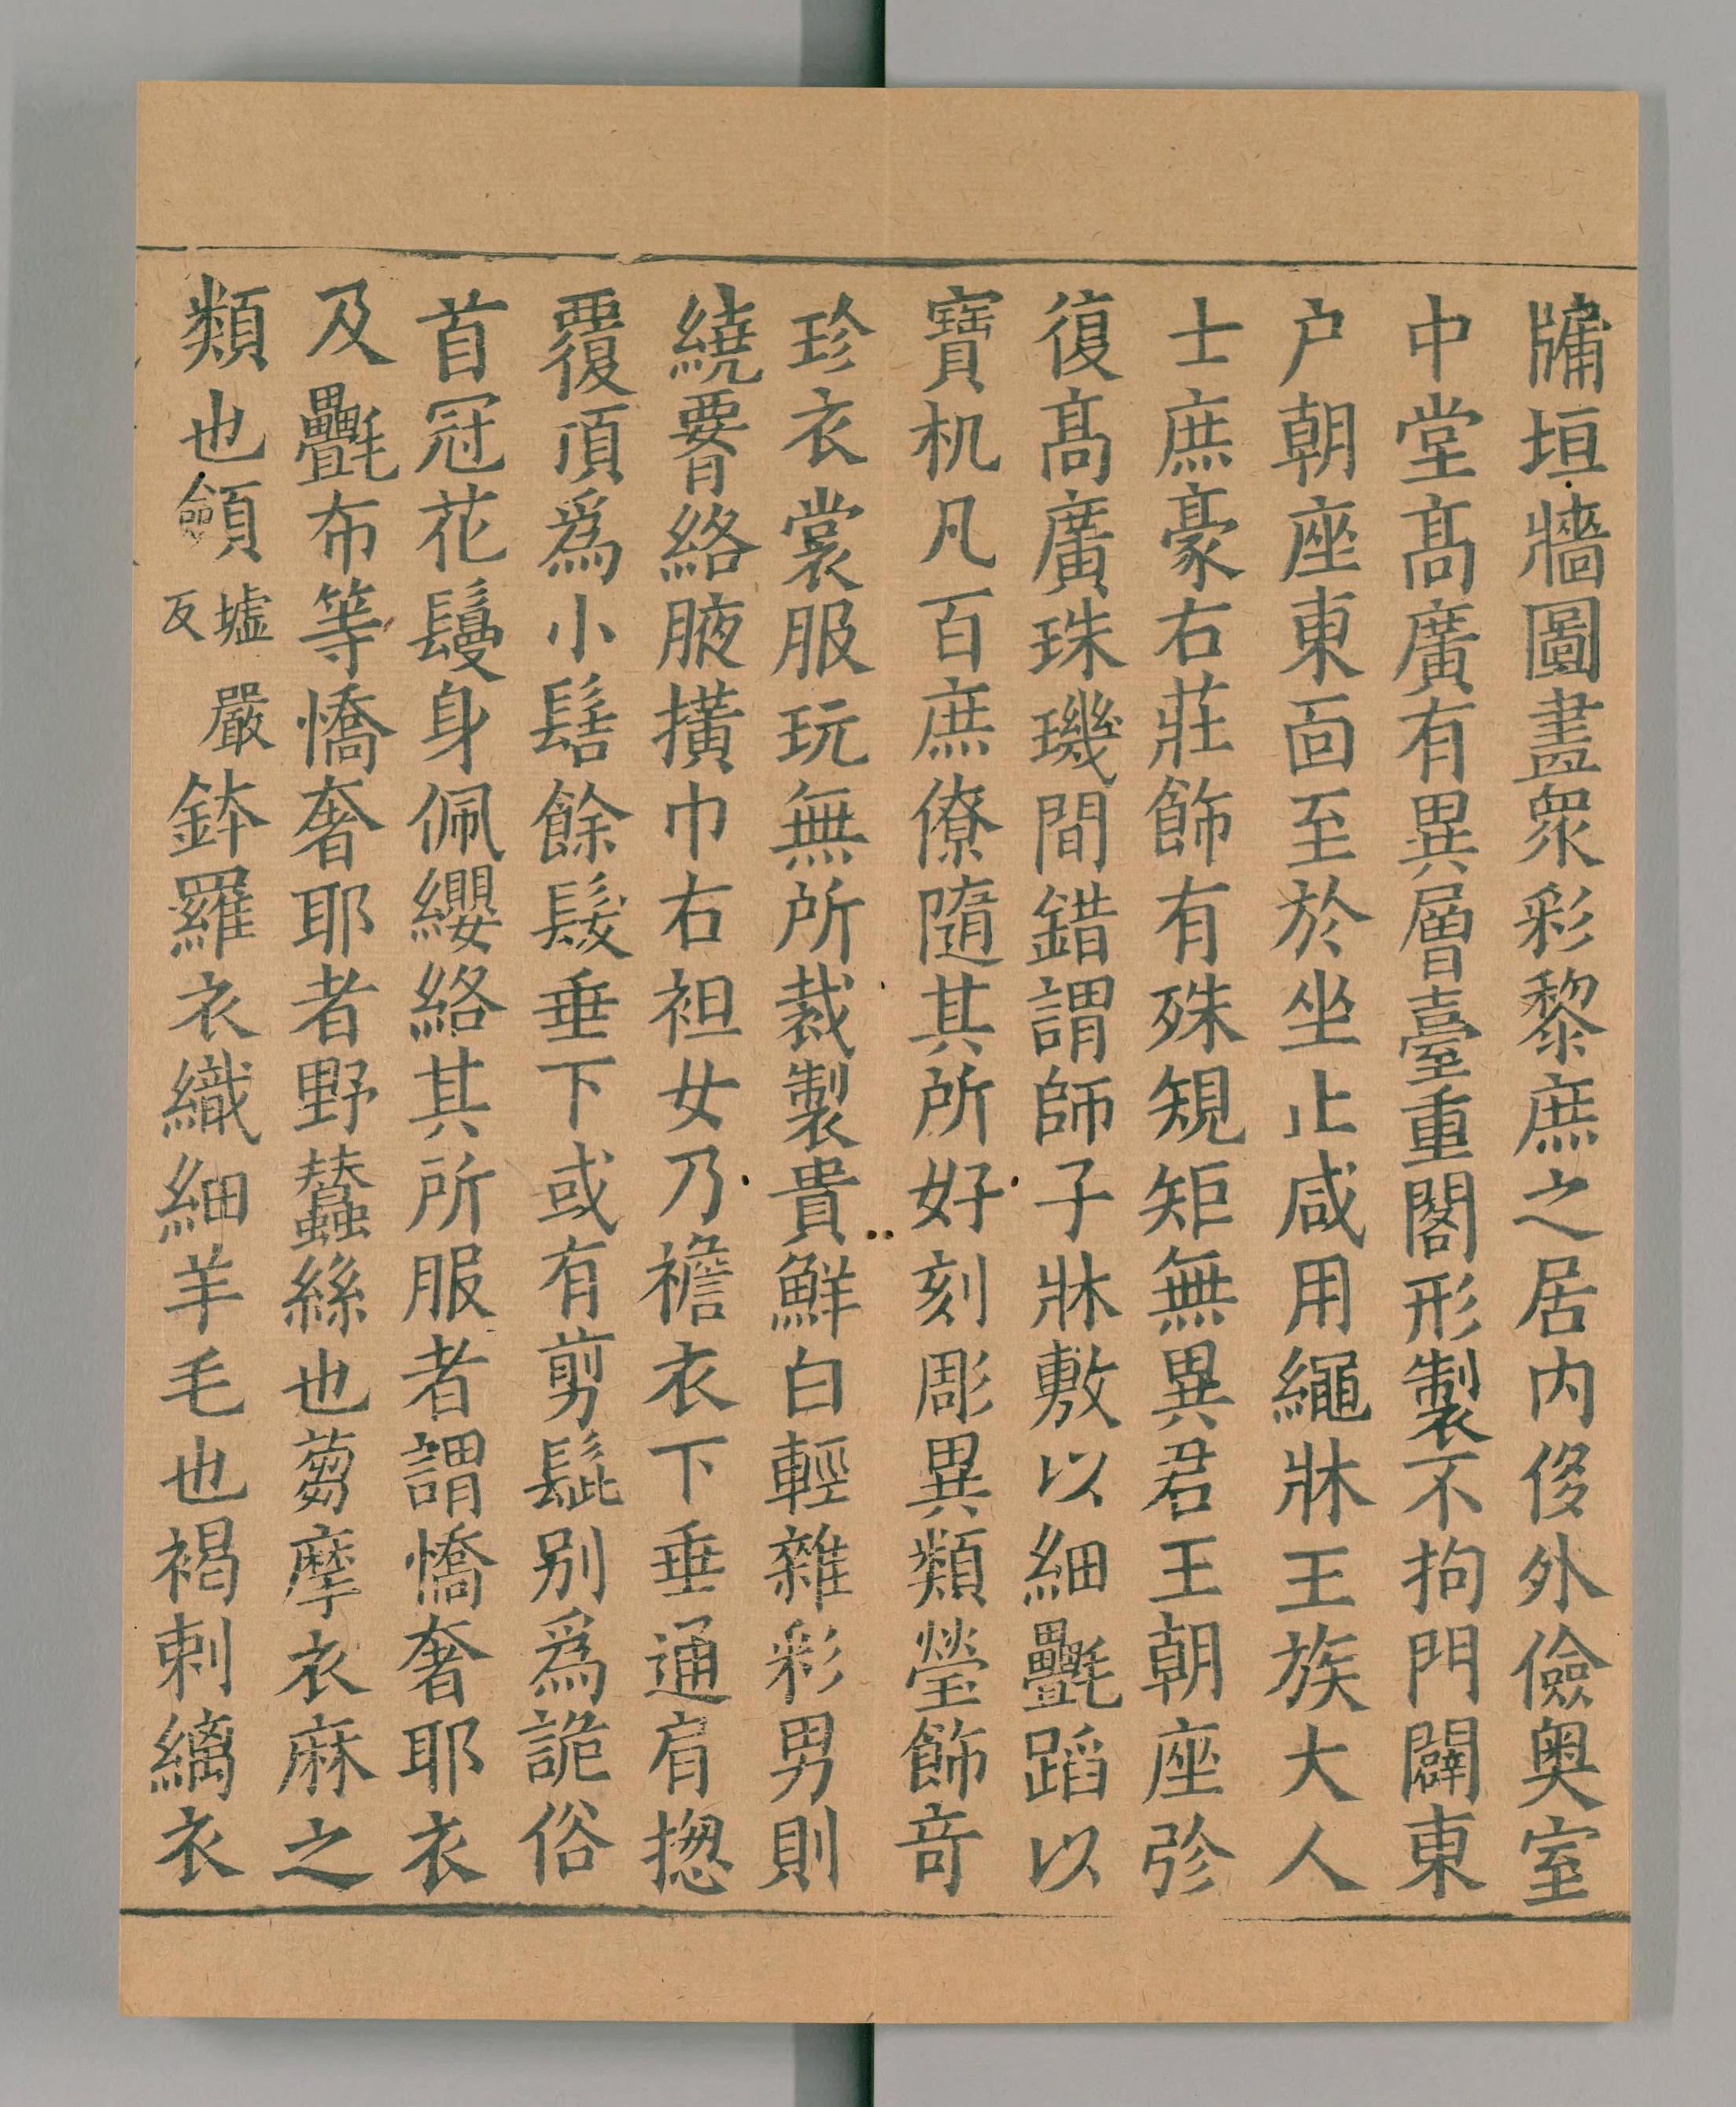 牖垣牆圖盡衆彩黎庶之居内侈外儉奥室
中堂髙廣有異層臺重閣形製不拘門闢東
户朝座東面至於坐止咸用繩牀王族大人
士庶豪右莊飾有殊規矩無異君王朝座弥
復髙廣珠璣間錯謂師子牀敷以細㲲蹈以
寶机凡百庶僚隨其所好刻彫異類瑩飾奇
珍衣裳服玩無所裁製貴鮮白輕雜彩男則
繞腰絡腋撗巾右袒女乃襜衣下垂通肩揔
覆頂爲小髻餘髮垂下或有剪髭别爲詭俗
首冠花鬘身佩纓絡其所服者謂憍奢耶衣
及㲲布等憍奢耶者野蠶絲也蒭摩衣麻之
類也顩墟嚴反鉢羅衣織細羊毛也褐剌縭衣